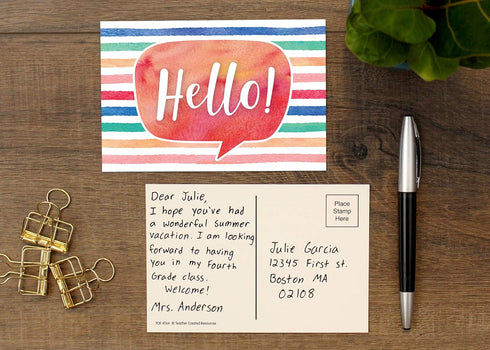 Hello!
Dear Julie,
I hope you've had
a wonderful summer
vacation. I am looking
forward to having
you in my fourth
Grade class.
Welcome!
Mrs. Anderson
Place
Stamp
Here
Julie Garcia
12345 First St.
Boston MA
02108
© Teacher Created Resources